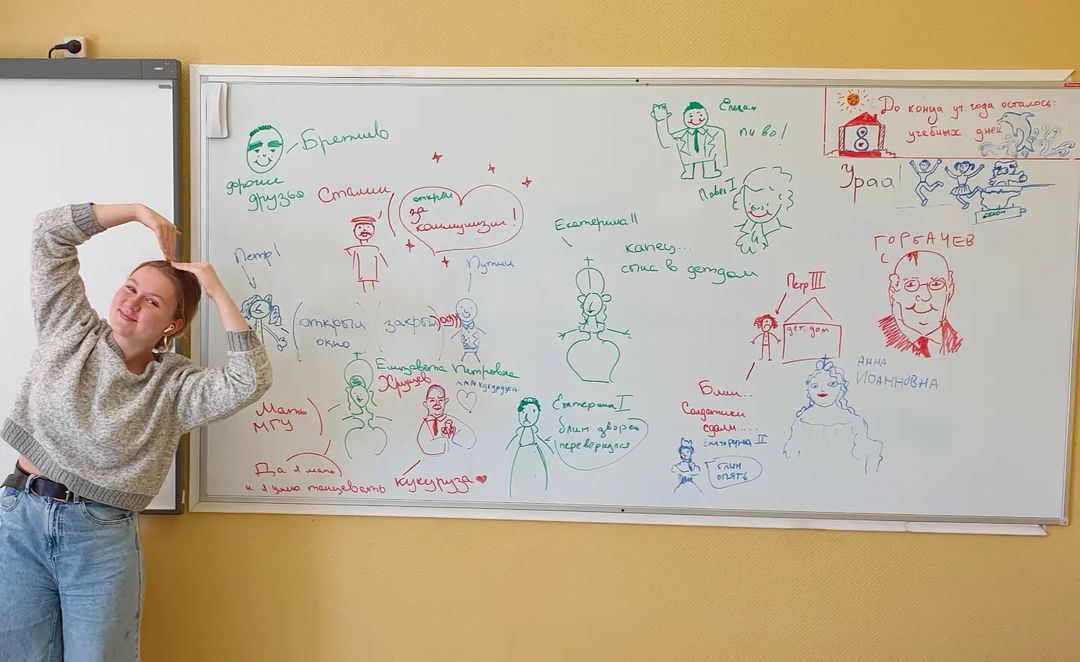 Брежнев
дорогие
друзья
Сталин
открыл
за
коммунизм!
Ельцин
пиво!
Павел I
До конца уч года осталось:
8
учебных дней
Ураа!
ГОРБАЧЕВ
Екатерина II
капец...
спис в детдом
Петр III
дет. дом
Петр I
открыл
окно
Путин
закрыл
Елизавета Петровна
Хрущев
ммм кукуруза...
Мать
МГУ
Да я мать
и я умею танцевать
кукуруза
Екатерина I
блин дворец
перевернулся
Блин...
Солдатики
сдали....
Екатерина II
блин
опять
АННА
ИОАННОВНА